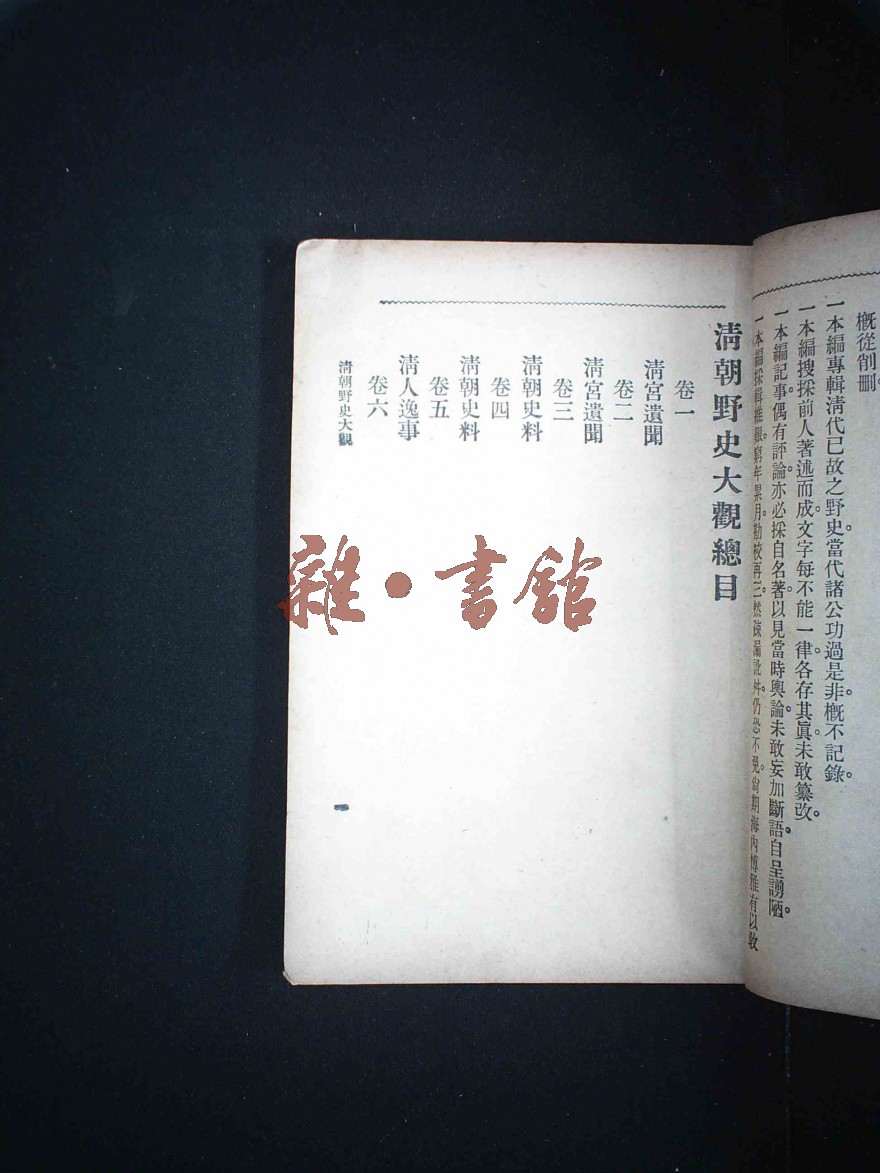 概從削刪。
一本編專輯清代已故之野史。當代諸公功過是非。概不記錄。
一本編搜採前人著述而成。文字每不能一律。各存其眞。未敢纂改。
一本編記事。偶有評論。亦必採自名著。以見當時輿論。未敢妄加斷語。自呈謭陋。
一本編採輯維艱。窮年累月。勘校再三。然疎漏訛舛。仍恐不免。尙期海內博雅有以敎
清朝野史大觀總目
卷一
清宮遺聞
卷二
清宮遺聞
卷三
清朝史料
卷四
清朝史料
卷五
清人逸事
卷六
清朝野史大觀
一
雜·書館